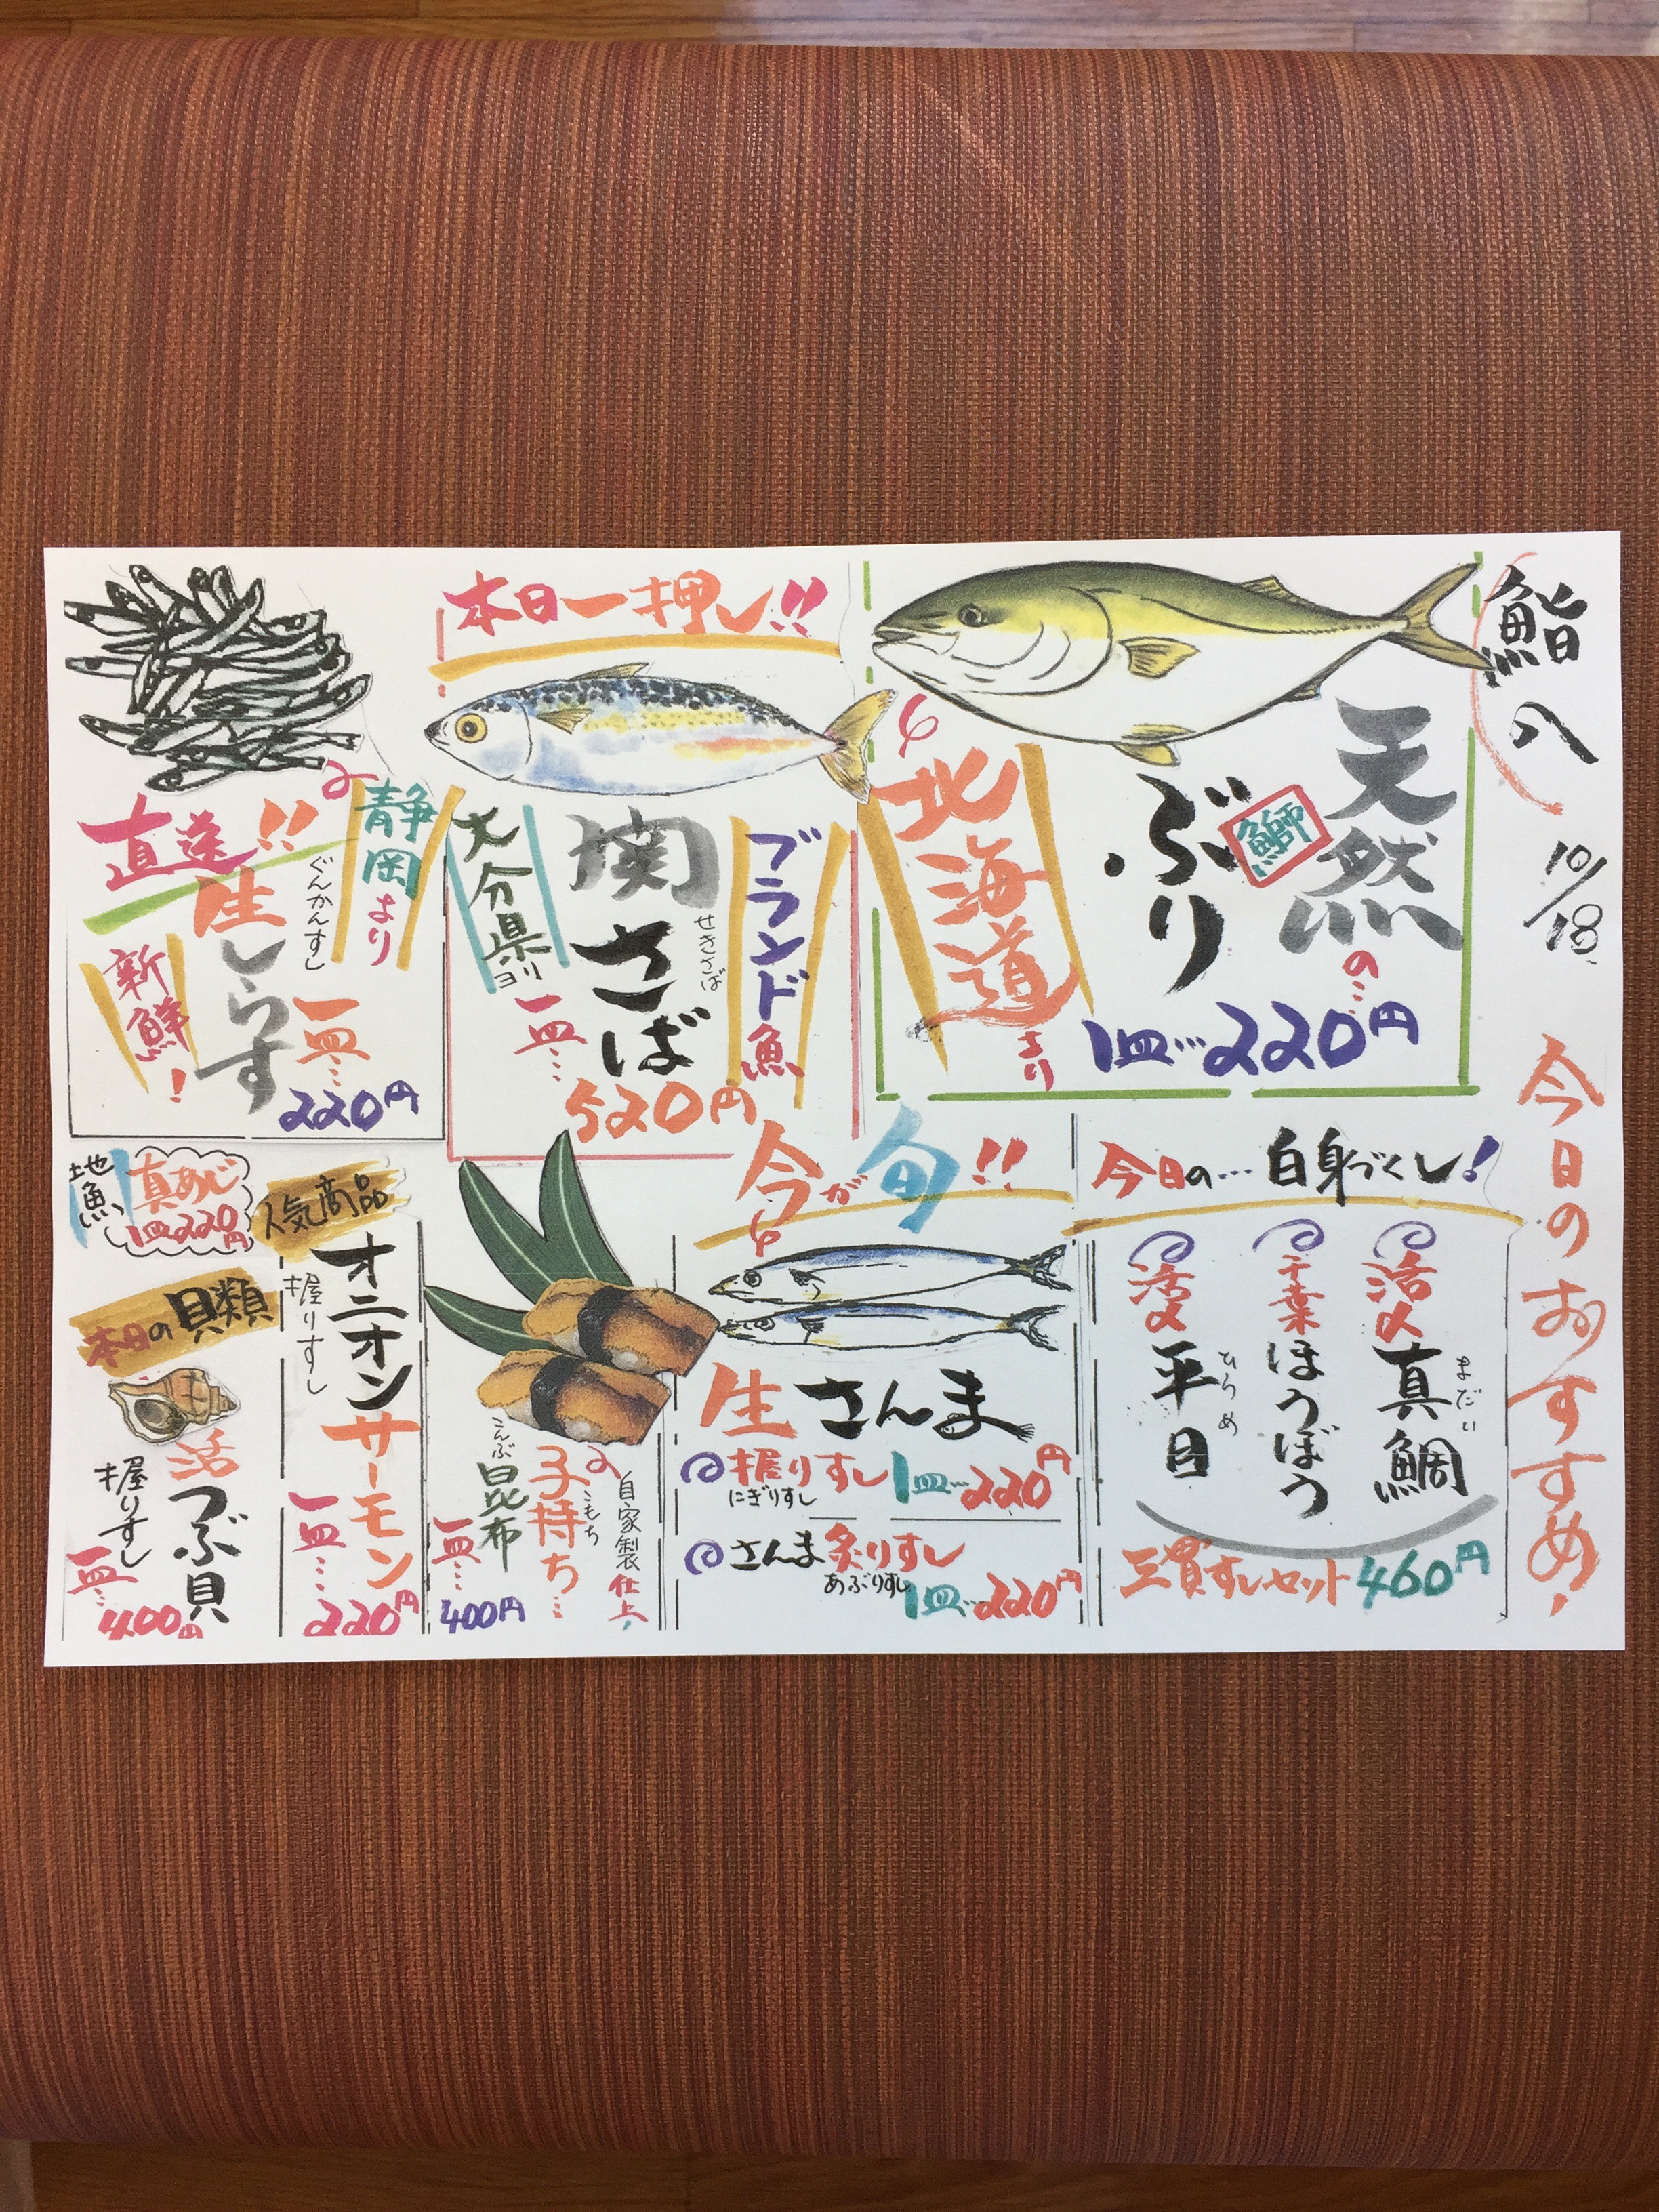 鮨の
10/18
今日のおすすめ!
天然の…
鰤
ぶり
北海道より
1皿…220円
本日一押し!!
ブランド魚
せきさば
関さば
大分県ヨリ
一皿…
520円
静岡より
直送!!
ぐんかんすし
生しらす
新鮮!
一皿…
220円
今日の…白身づくし!
活〆真鯛
まだい
千葉ほうぼう
活〆平目
ひらめ
三貫すしセット460円
今が旬!!
生さんま
握りすし 1皿…220円
にぎりすし
さんま炙りすし
あぶりすし
1皿…220円
自家製仕上
子持ち…
こもち
昆布
こんぶ
一皿…
400円
人気商品
オニオン
サーモン
握りすし
一皿…
220円
地魚
真あじ
1皿220円
本日の貝類
活つぶ貝
握りすし
一皿…
400円